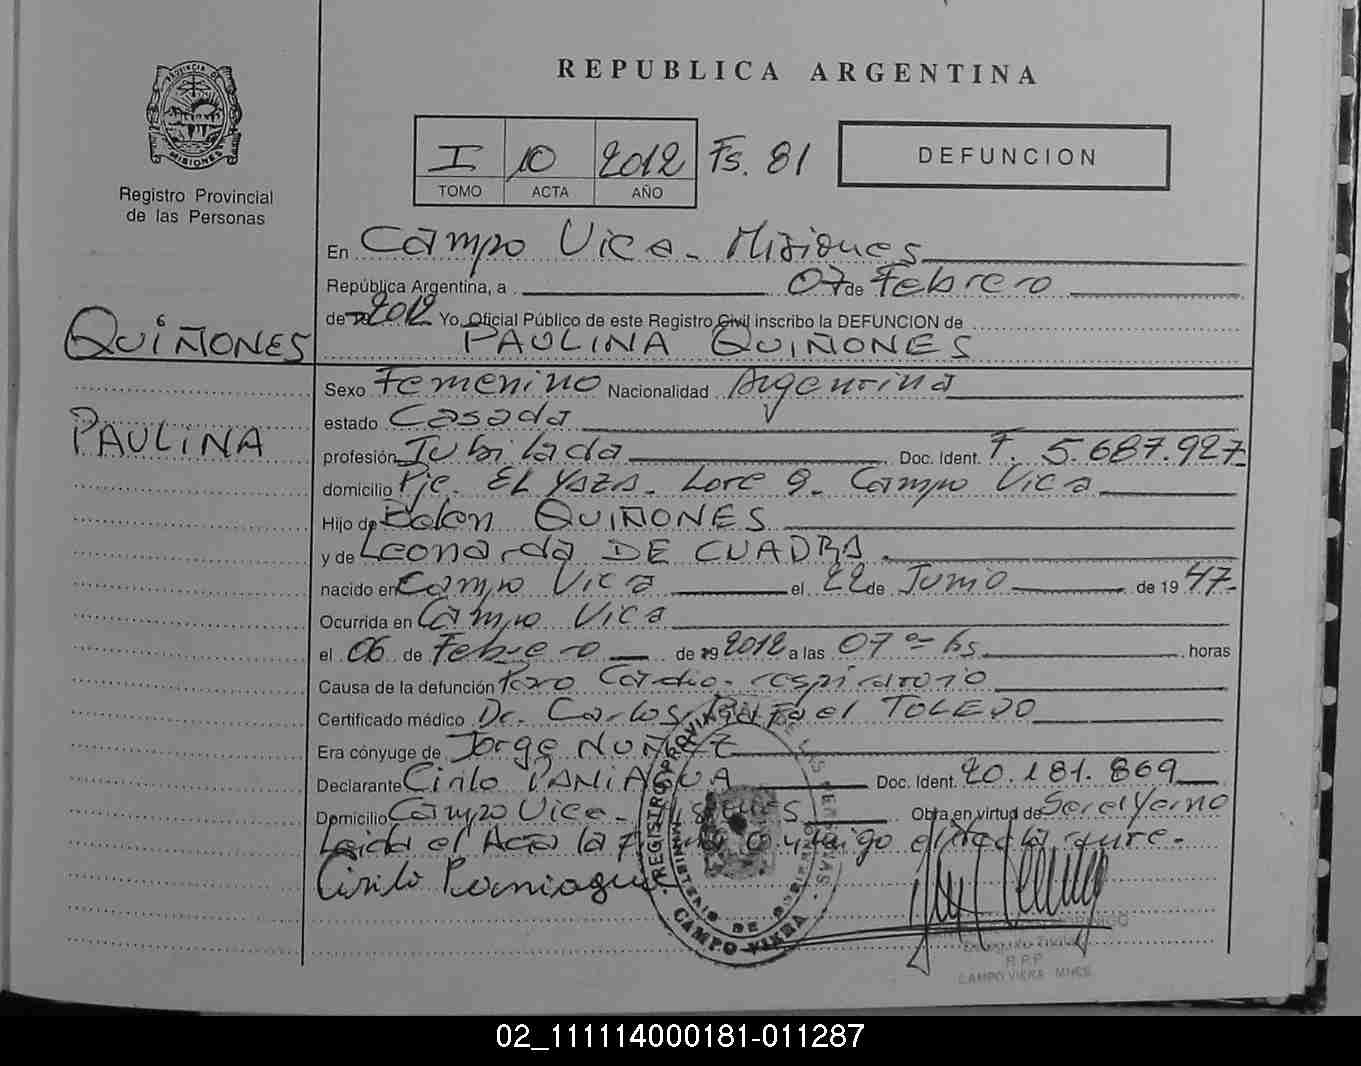 REPUBLICA ARGENTINA
PROVINCIA DE MISIONES
Registro Provincial
de las Personas
I 10 2012 Fs. 81
TOMO ACTA AÑO
DEFUNCION
En Campo Viera - Misiones
República Argentina, a 07 de Febrero
de 2012 Yo, Oficial Público de este Registro Civil inscribo la DEFUNCION de
PAULINA QUIÑONES
QUIÑONES
PAULINA
Sexo Femenino Nacionalidad Argentina
estado Casada
profesión Jubilada Doc. Ident. F. 5.687.927-
domicilio Pje. EL YAZA - Lote 9 - Campo Viera
Hijo de QUIÑONES
y de Leonarda DE CUADRA
nacido en Campo Viera el 22 de Junio de 1947-
Ocurrida en Campo Viera
el 06 de Febrero de 2012 a las 07 hs horas
Causa de la defunción Paro Cardio-respiratorio
Certificado médico Dr. Carlos Rafael TOLEDO
Era cónyuge de Jorge NUÑEZ
Declarante Cirilo PANIAGUA Doc. Ident. 20.181.869
Domicilio Campo Viera - Misiones Obra en virtud de Ser el Yerno
Leida el Acta la firma conmigo el declarante.
Cirilo Paniagua
REGISTRO PROVINCIAL DE LAS PERSONAS
MINISTERIO DE GOBIERNO
CAMPO VIERA
R.P.P.
CAMPO VIERA MNES.
02_111114000181-011287